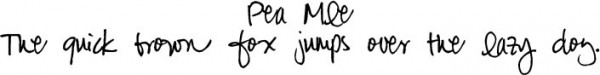 Pea Mle
The quick brown fox jumps over the lazy dog.